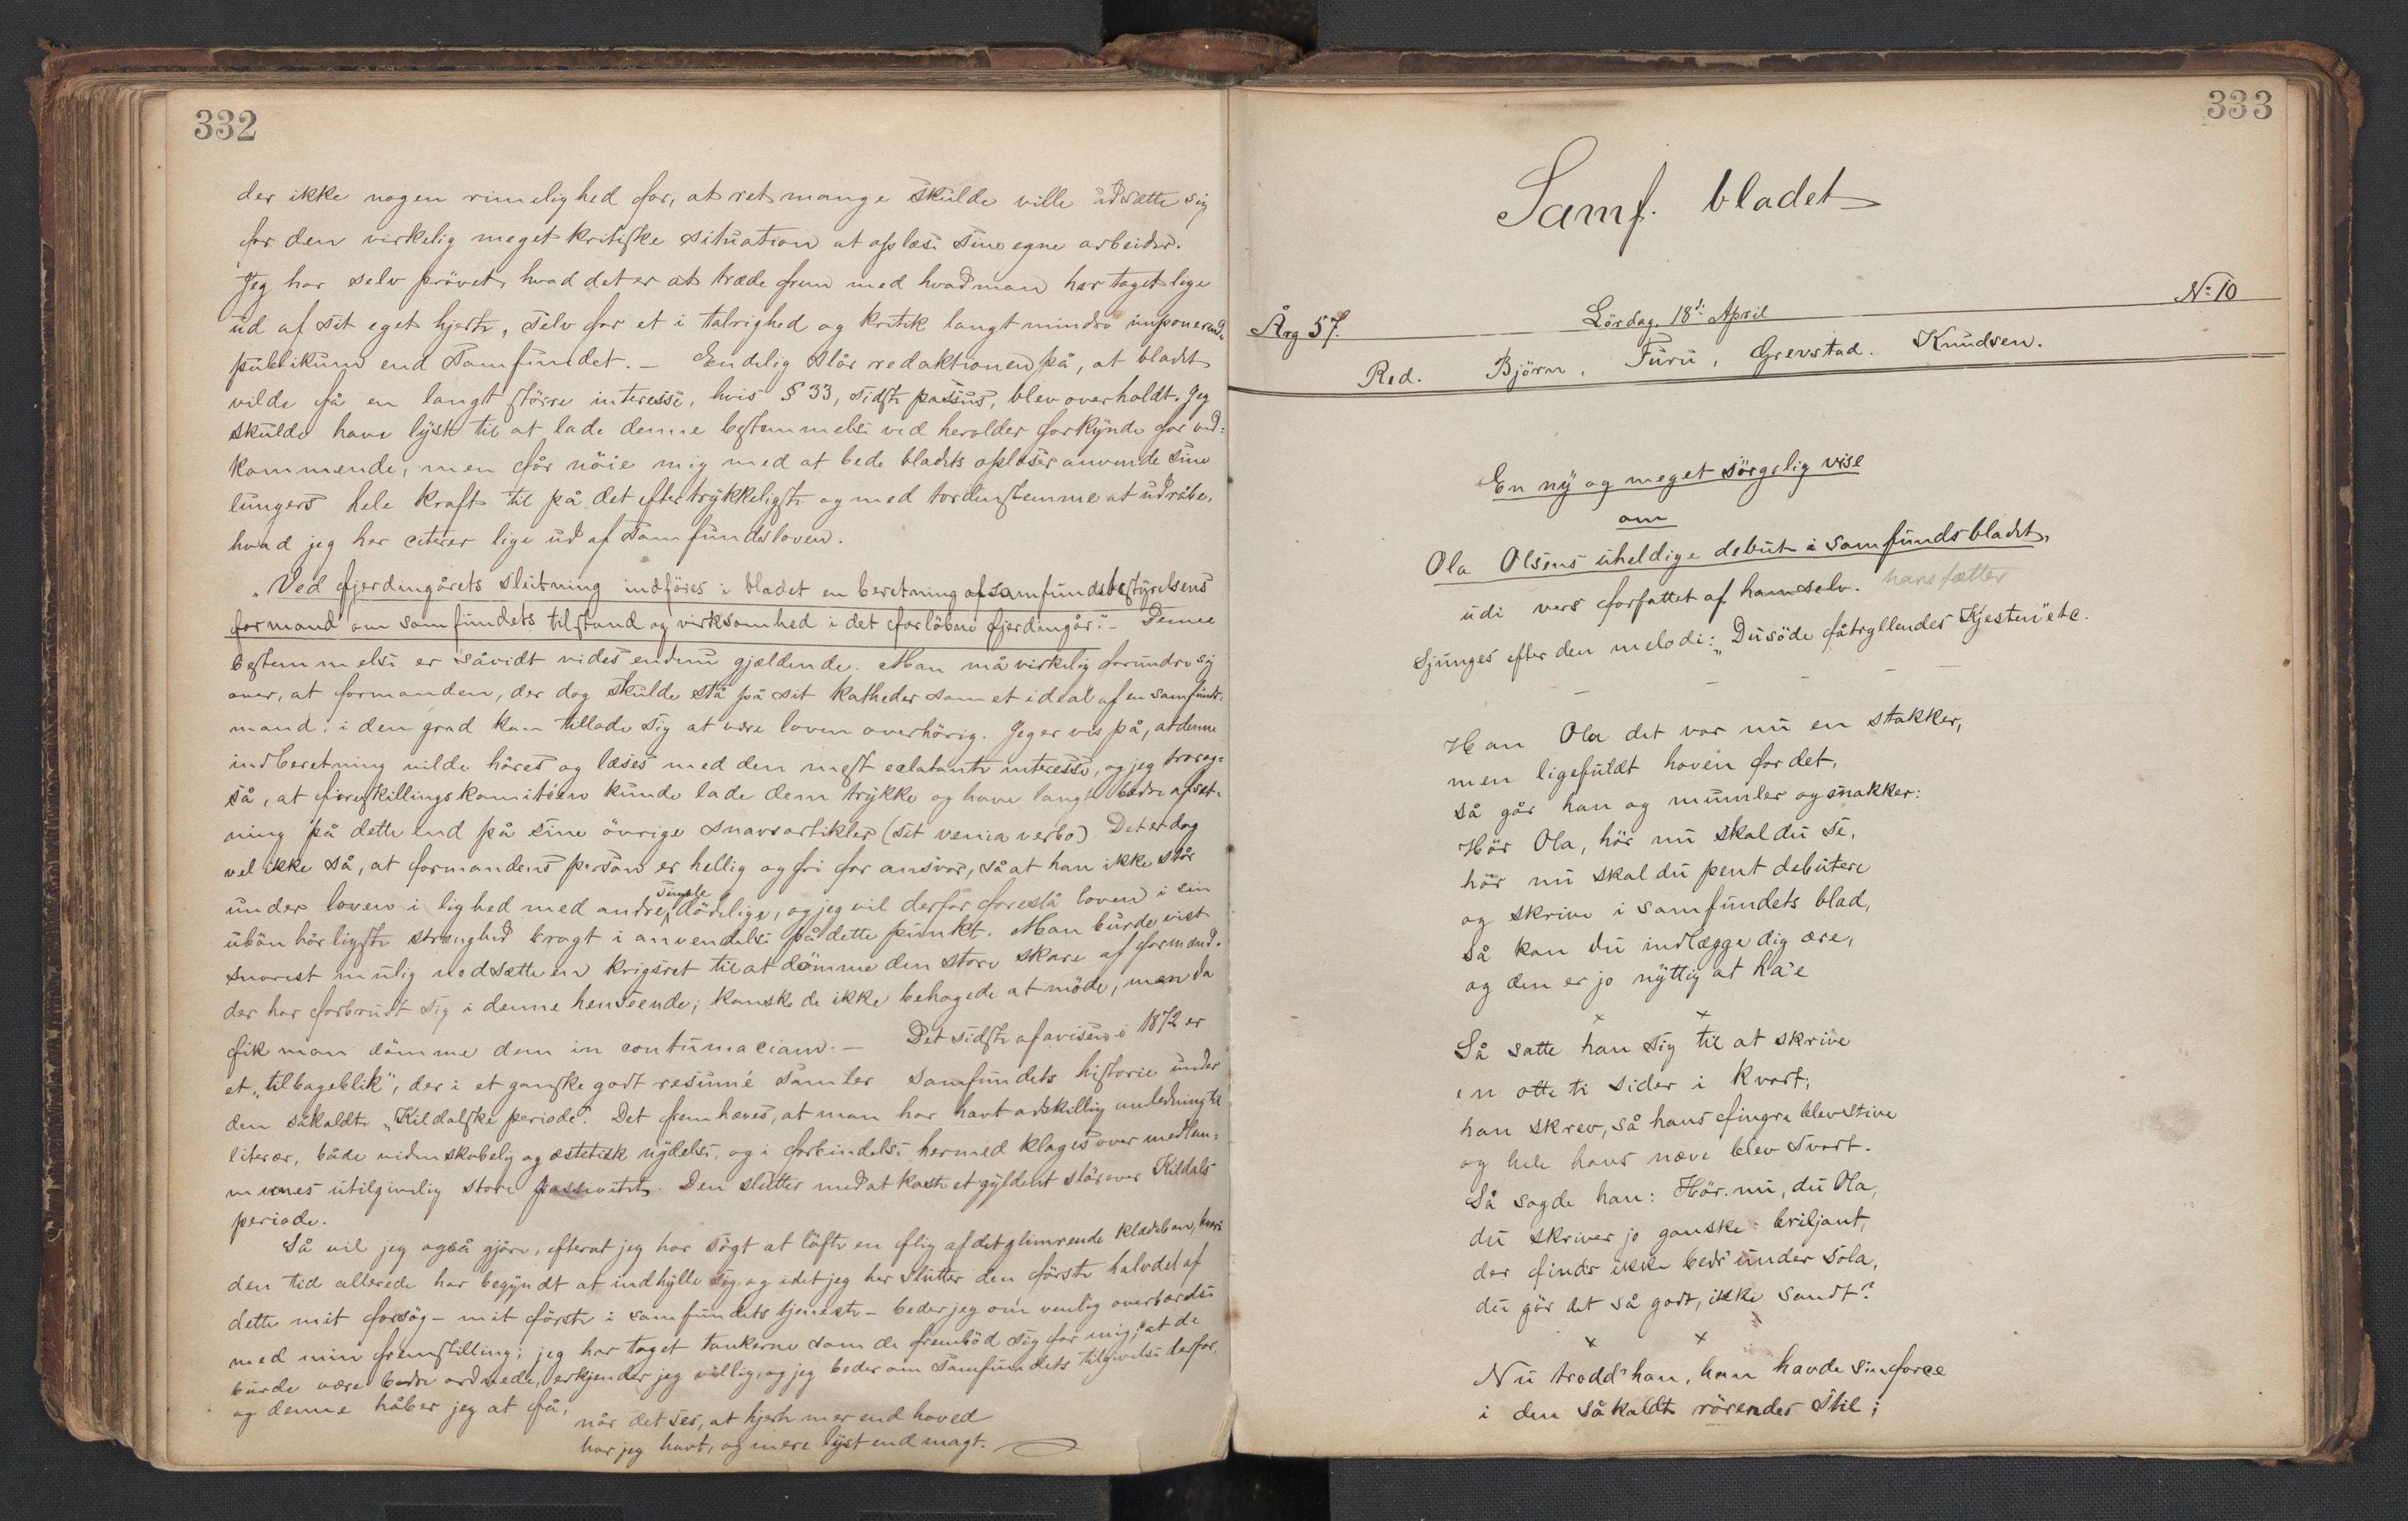 332
der ikke nogen rimelighed for, at ret mange skulde ville udsætte sig
for den virkelig meget kritiske situation at oplæse sine egne arbeider.
Jeg har selv prövet, hvad det er at træde frem med hvad man har taget lige
ud af sit eget hjerte, selv for et i talrighed og kritik langt mindre imponerende
publikum end Samfundet. – Endelig slår redaktionen på, at bladet
vilde få en langt större interesse, hvis § 33, sidste passus, blev overholdt. Jeg
skulde have lyst til at lade denne bestemmelse ved herolder forkynde for ved-
kommende, men får nöie mig med at bede bladets oplæser anvende sine
lungers hele kraft til på det eftertrykkeligste og med tordenstemme at udråbe,
hvad jeg her citerer lige ud af Samfundsloven.
„Ved fjerdingårets slutning indföres i bladet en beretning af samfundsbestyrelsens
formand om samfundets tilstand og virksomhed i det forlöbne fjerdingår." – Denne
bestemmelse er såvidt vides endnu gjældende. Man må virkelig forundre sig
over, at formanden, der dog skulde stå på sit katheder som et ideal af en samfunds-
mand, i den grad kan tillade sig at være loven overhörig. Jeg er vis på, at denne
indberetning vilde höres og læses med den mest eclatante interesse, og jeg tror og-
så, at forestillingskomitéen kunde lade dem trykke og have langt bedre afsæt-
ning på dette end på sine övrige snavsartikler (sit venia verbo). Det er dog
vel ikke så, at formandens person er hellig og fri for ansvar, så at han ikke står
under loven i lighed med andre simple dödelige, og jeg vil derfor foreslå loven i sin
ubönhörligste strenghed bragt i anvendelse på dette punkt. Man burde vist
snarest mulig nedsætte en krigsret til at dömme den store skare af formænd,
der har forbrudt sig i denne henseende; kanske de ikke behagede at möde, men da
fik man dömme dem in contumaciam. – Det sidste af avisen i 1872 er
et „tilbageblik", der i et ganske godt resumé samler samfundets historie under
den såkaldte „Kildalske periode". Det fremhæves, at man har havt adskillig anledning til
literær, både videnskabelig og æstetisk nydelse, og i forbindelse hermed klages over medlem-
mernes utilgivelig store passivitet. Den slutter med at kaste et gyldent slör over Kildals
periode.
Så vil jeg også gjöre, efterat jeg har sögt at löfte en flig af det glimrende klædebon, hvori
den tid allerede har begyndt at indhylle sig, og idet jeg her slutter den förste halvdel af
dette mit forsög – mit förste i samfundets tjeneste – beder jeg om venlig overbærelse
med min fremstilling; jeg har taget tankerne som de fremböd sig for mig; at de
burde være bedre ordnede, erkjender jeg villig, og jeg beder om Samfundets tilgivelse derfor,
og denne håber jeg at få,
når det ses, at hjerte mer end hoved
har jeg havt, og mere lyst end magt.
333
Samf. bladet
Årg 57.
Lördag. 18de April
No 10
Red. Björn, Furu, Grevstad. Knudsen.
En ny og meget sörgelig vise
om
Ola Olsens uheldige debut i samfundsbladet,
udi vers forfattet af ham selv. hans fætter
Sjunges efter den melodi: „Du söde fåtryllendes Kjesten" etc.
Han Ola det var nu en stakker,
men ligefuldt hoven for det,
så går han og mumler og snakker:
Hör Ola, hör nu skal du se,
hör nu skal du pent debutere
og skrive i samfundets blad,
så kan du indlægge dig ære,
og den er jo nyttig at ha'e
x x
Så satte han sig til at skrive
en otte ti sider i kvart,
han skrev, så hans fingre blev stive
og hele hans næve blev svart.
Så sagde han: Hör nu, du Ola,
du skriver jo ganske briljant,
der finds ikke beds' under sola,
du gör det så godt, ikke sandt?
x x
Nu trodd' han, han havde sin force
i den såkaldt rörendes Stil;